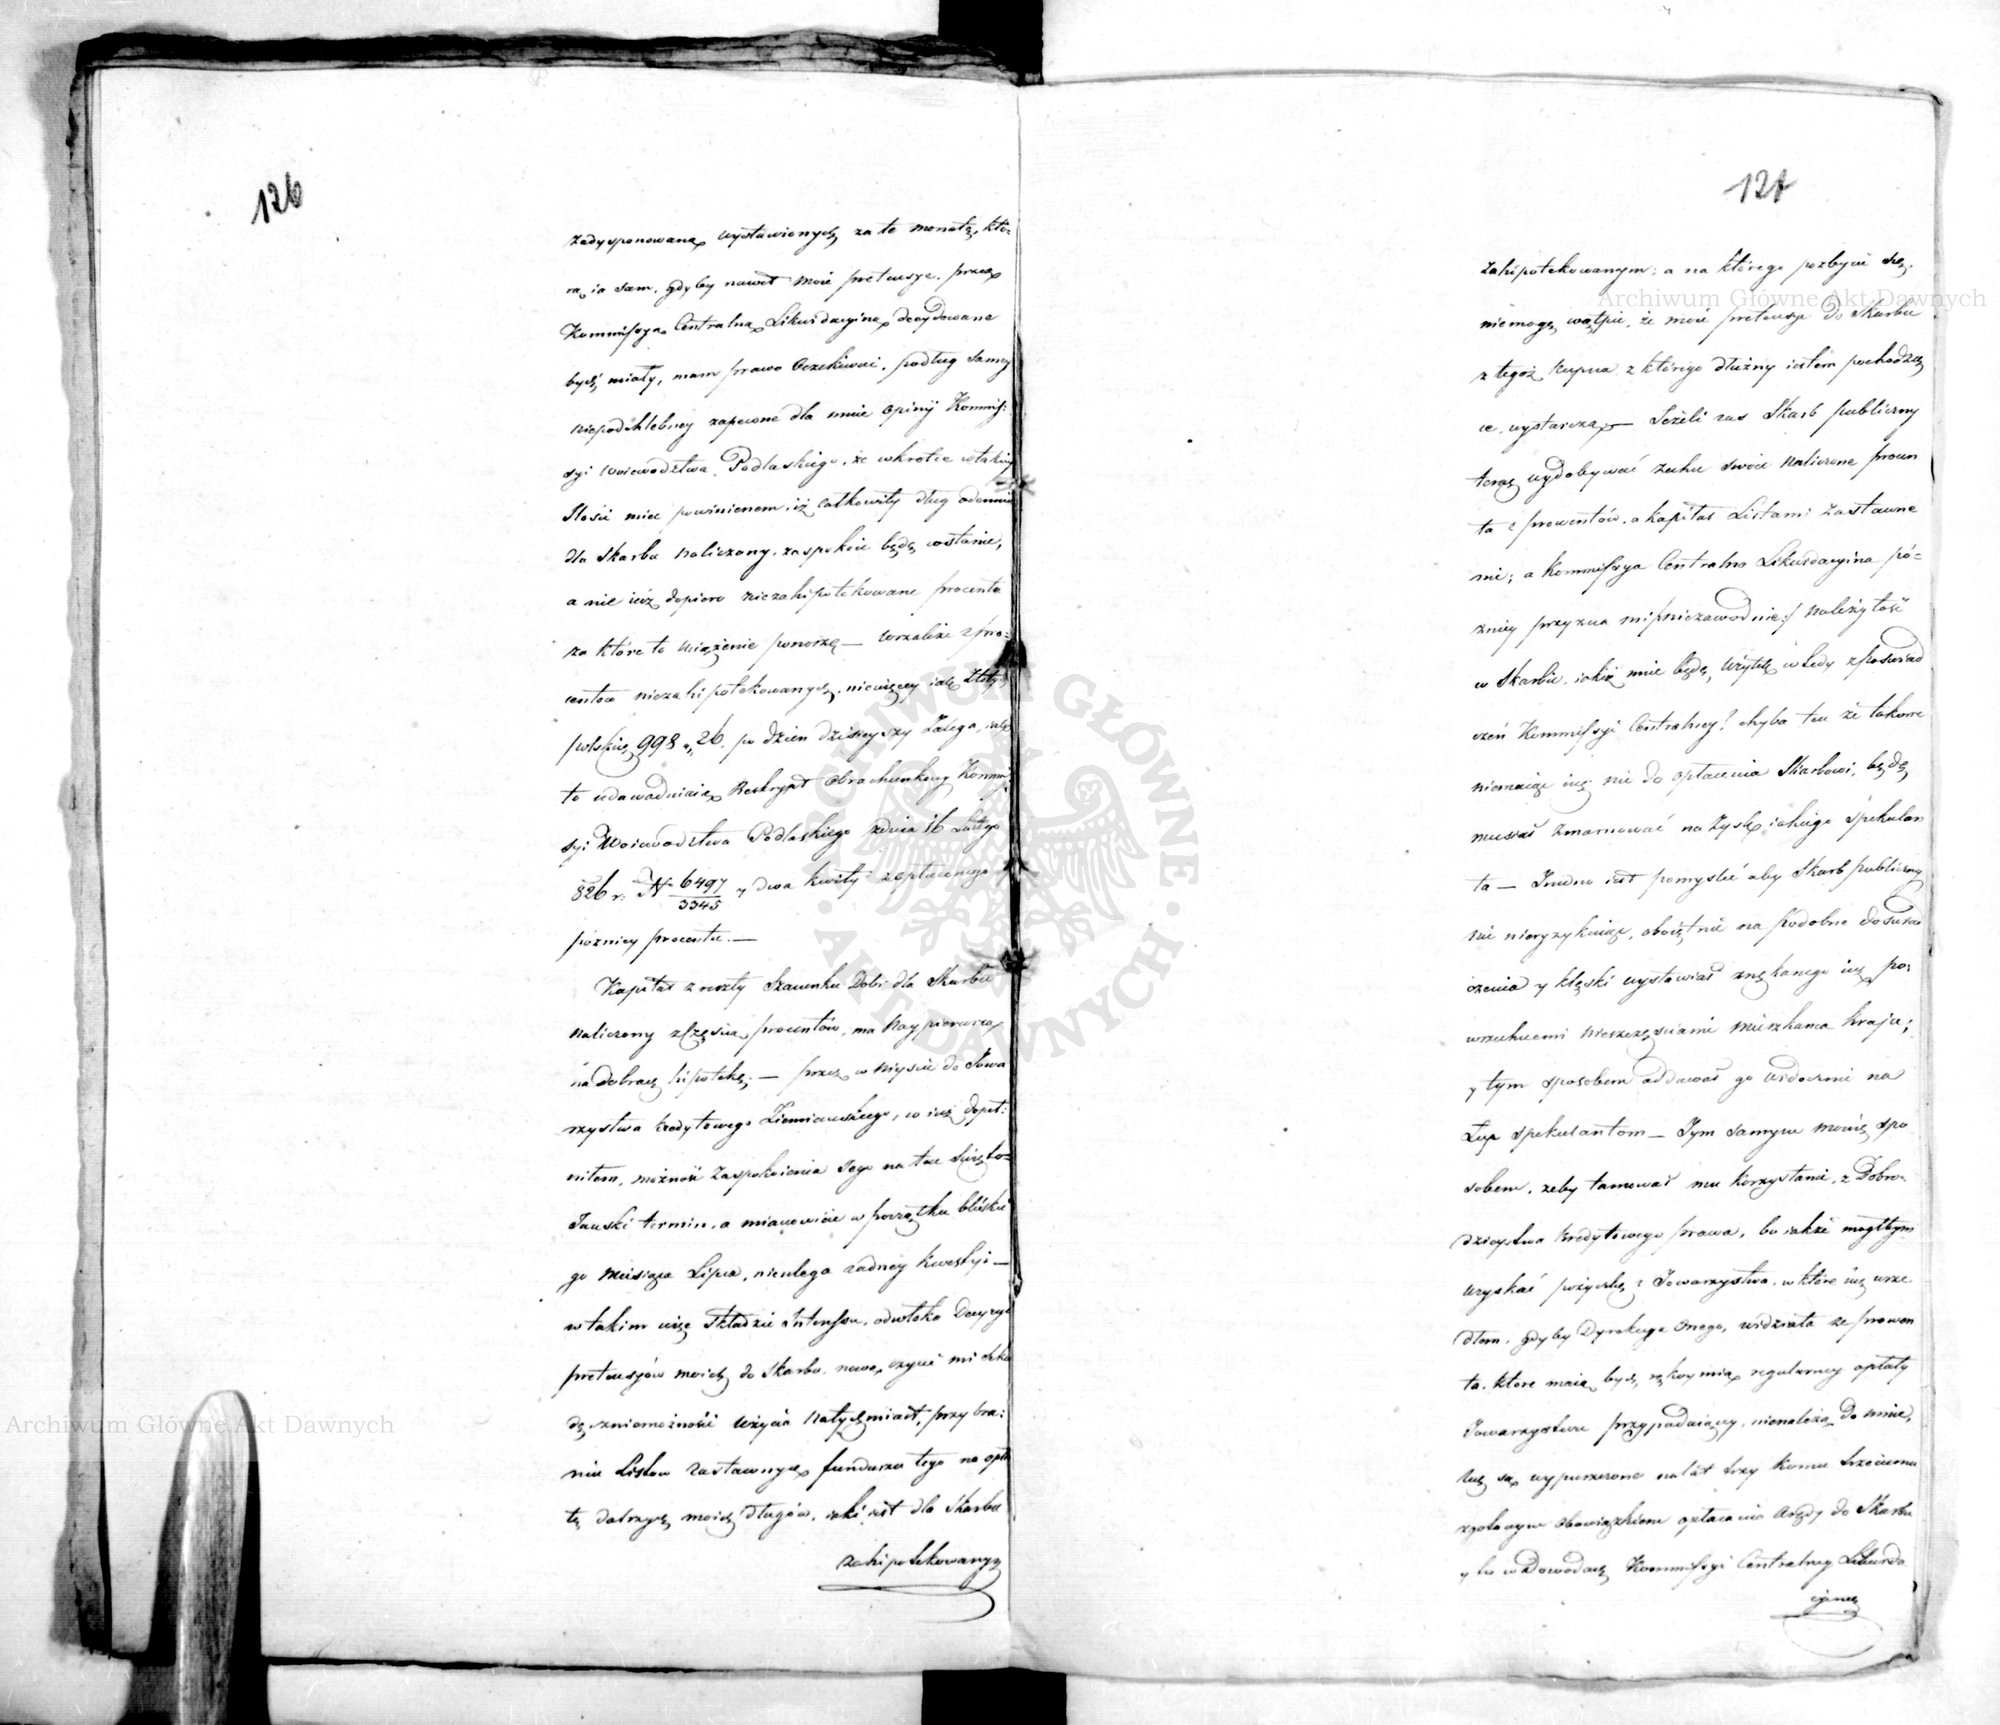 126
zadysponowaną wystawionych za te monetą, któ=
rą ia sam, gdyby nawet moie pretensye, przez
Kommissyą Centralną Likwidacyiną decydowane
bydź miały, mam prawo oczekiwać, podług samey
niepochlebney zapewne dla mnie opinij Kommis:
syi Woiewodztwa Podlaskiego, że wkrotce w takiey
Ilości mieć powinienem, iż całkowity dług odemnie
dla Skarbu naliczony, zaspokoić będę w stanie,
a nie iuż dopiero niezahipotekowane procenta
za które to uciążenie ponoszę — wszakże z pro=
centów niezahipotekowanych, niewięcey iak Złotych
polskich 998 „ 26. po dzień dzisieyszy zalega, iak
to udawadniaią Reskrypt Obrachunkowy Kommis
syi Woiewodztwa Podlaskiego z dnia 16 Lutego
826 r. N 6497/3345 y dwa kwity z opłaconego
pozniey procentu. —
Kapitał z reszty Szacunku Dobr dla Skarbu
naliczony z częścią procentów, ma nay pierwszą
na dobrach hipotekę; — przez w niyście do Towa
rzystwa kredytowego Ziemiańskiego, co iuż dopeł:
niłem, możność zaspokoienia Jego na tuż Święto=
Jański termin, a mianowicie w początku bliskie
go Miesiąca Lipca, nieulega żadney kwestyi —
w takim więc składzie Interessu, odwłoka Decyzyi
pretensyów moich do Skarbu, nową czyni mi szko
dę, z niemożności użycia natychmiast, przy bra:
niu Listów zastawnych funduszu tego na opła
tę dalszych moich długów, iaki iest dla Skarbu
zahipotekowany
127
Zahipotekowanym; a na którego pozbycie się,
niemogę wątpić, że moie pretensye do Skarbu
z tegoż kupna z którego dłużny iestem pochodzą
ce, wystarczą — Jeżeli zas Skarb publiczny
teraz wydobywać zechce swoie naliczone procen
ta z prowentów, a kapitał Listami Zastawne
mi; a Kommissya Centralna Likwidacyina pó=
zniey przyzna mi /:niezawodnie:/ należytość
w Skarbie, iakiż mieć będę, użytek wtedy z poswiad
czeń Kommissyi Centralney? chyba ten że takowe
niemaiąc iuż nic do opłacenia Skarbowi, będę
musiał zmarnować na zysk iakiego Spekulan
ta — Trudno iest pomyslić aby Skarb publiczny
nic nieryzykuiąc, oboiętnie na podobne doswiad
czenia y klęski wystawiał znękanego iuż po=
wszechnemi nieszczęsciami mieszkańca kraju;
y tym sposobem oddawał go widocznie na
Łup spekulantom — Tym samym mówię spo
sobem, żeby tamował mu korzystanie, z Dobro=
dzieystwa kredytowego prawa, bo iakże mogłbym
uzyskać pożyczkę z Towarzystwa, w które iuż wsze
dłem, gdyby Dyrekcya onego, widziała że prowen
ta, które maią bydź rękoymią regularney opłaty
Towarzystwu przypadaiącey, nienależą do mnie,
lecz są wypuszczone na lat trzy komu trzeciemu
z obowiązkiem opłacania Arędy do Skarbu
y to w Dowodach Kommissyi Centralney Likwida
cyiney
Archiwum Główne Akt Dawnych
Archiwum Główne Akt Dawnych
ARCHIWUM GŁÓWNE AKT DAWNYCH